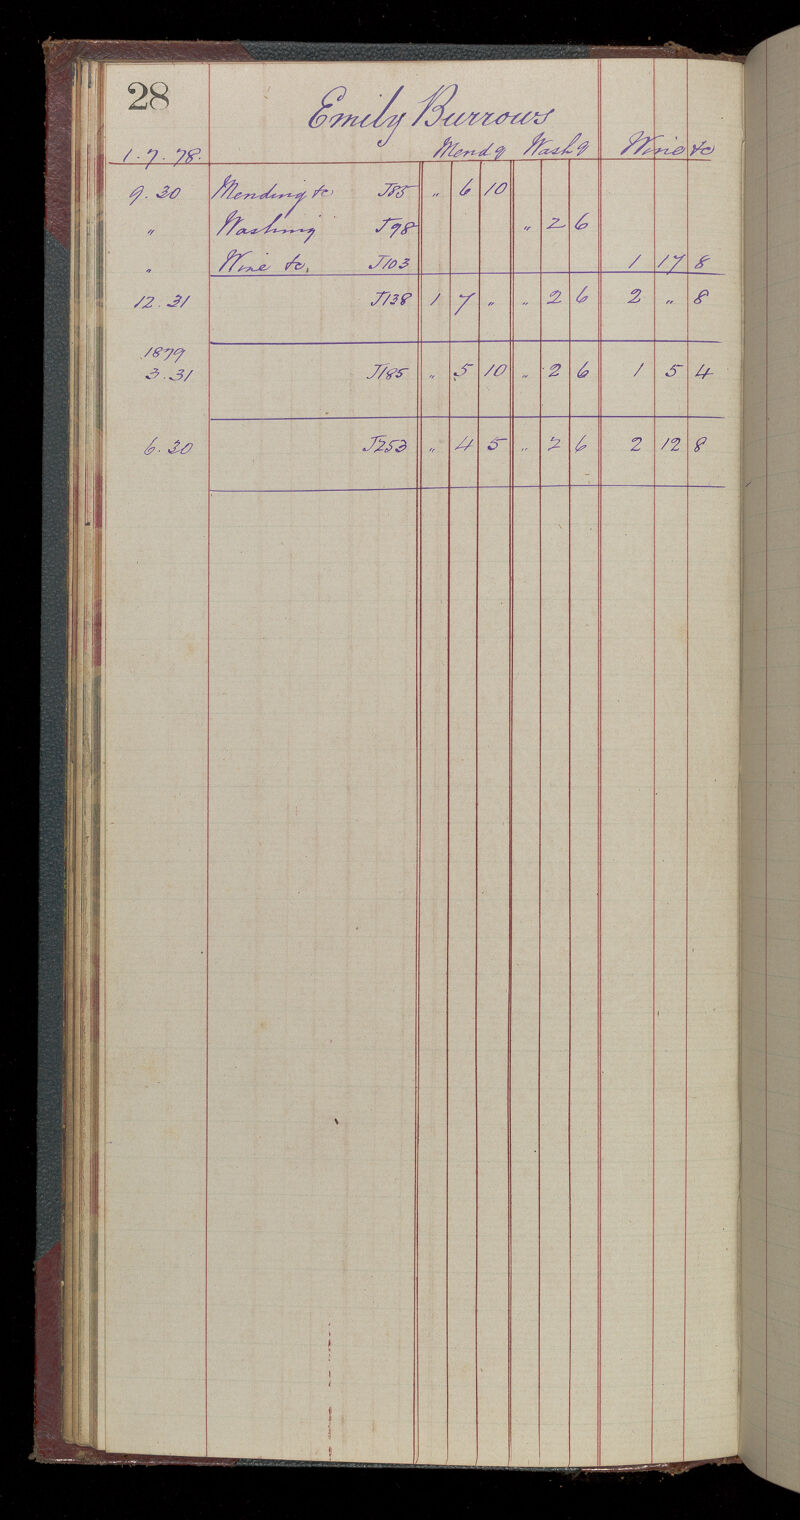 28
Emily Burrows
1.7.78. Mendg Washg Wine &c
9.30 Mending &c J85 " 6 10
" Washing J98 " 2 6
" Wine &c. J103 1 17 8
12.31 J138 1 7 " " 2 6 2 " 8
1879
3.31 J185 " 5 10 " 2 6 1 5 4
6.30 J253 " 4 5 " 2 6 2 12 8